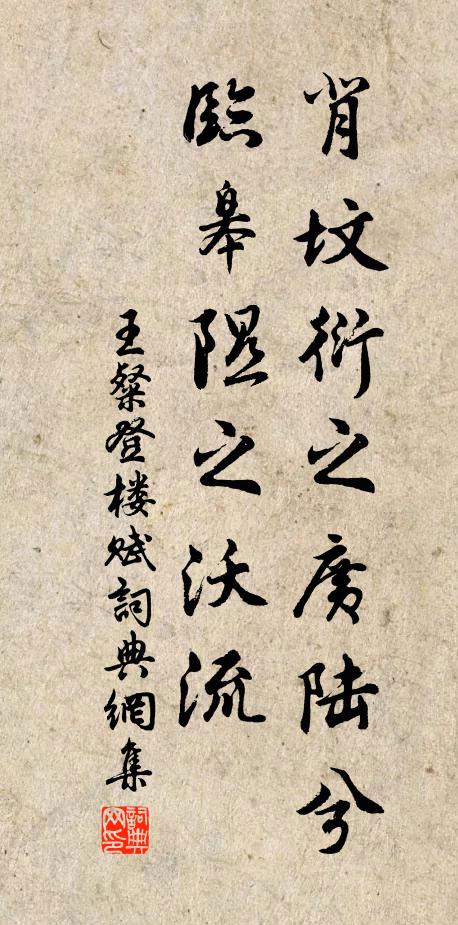 背坟衍之廣陆兮
臨皋隰之沃流
王粲登楼赋詞典網集
詞典网印